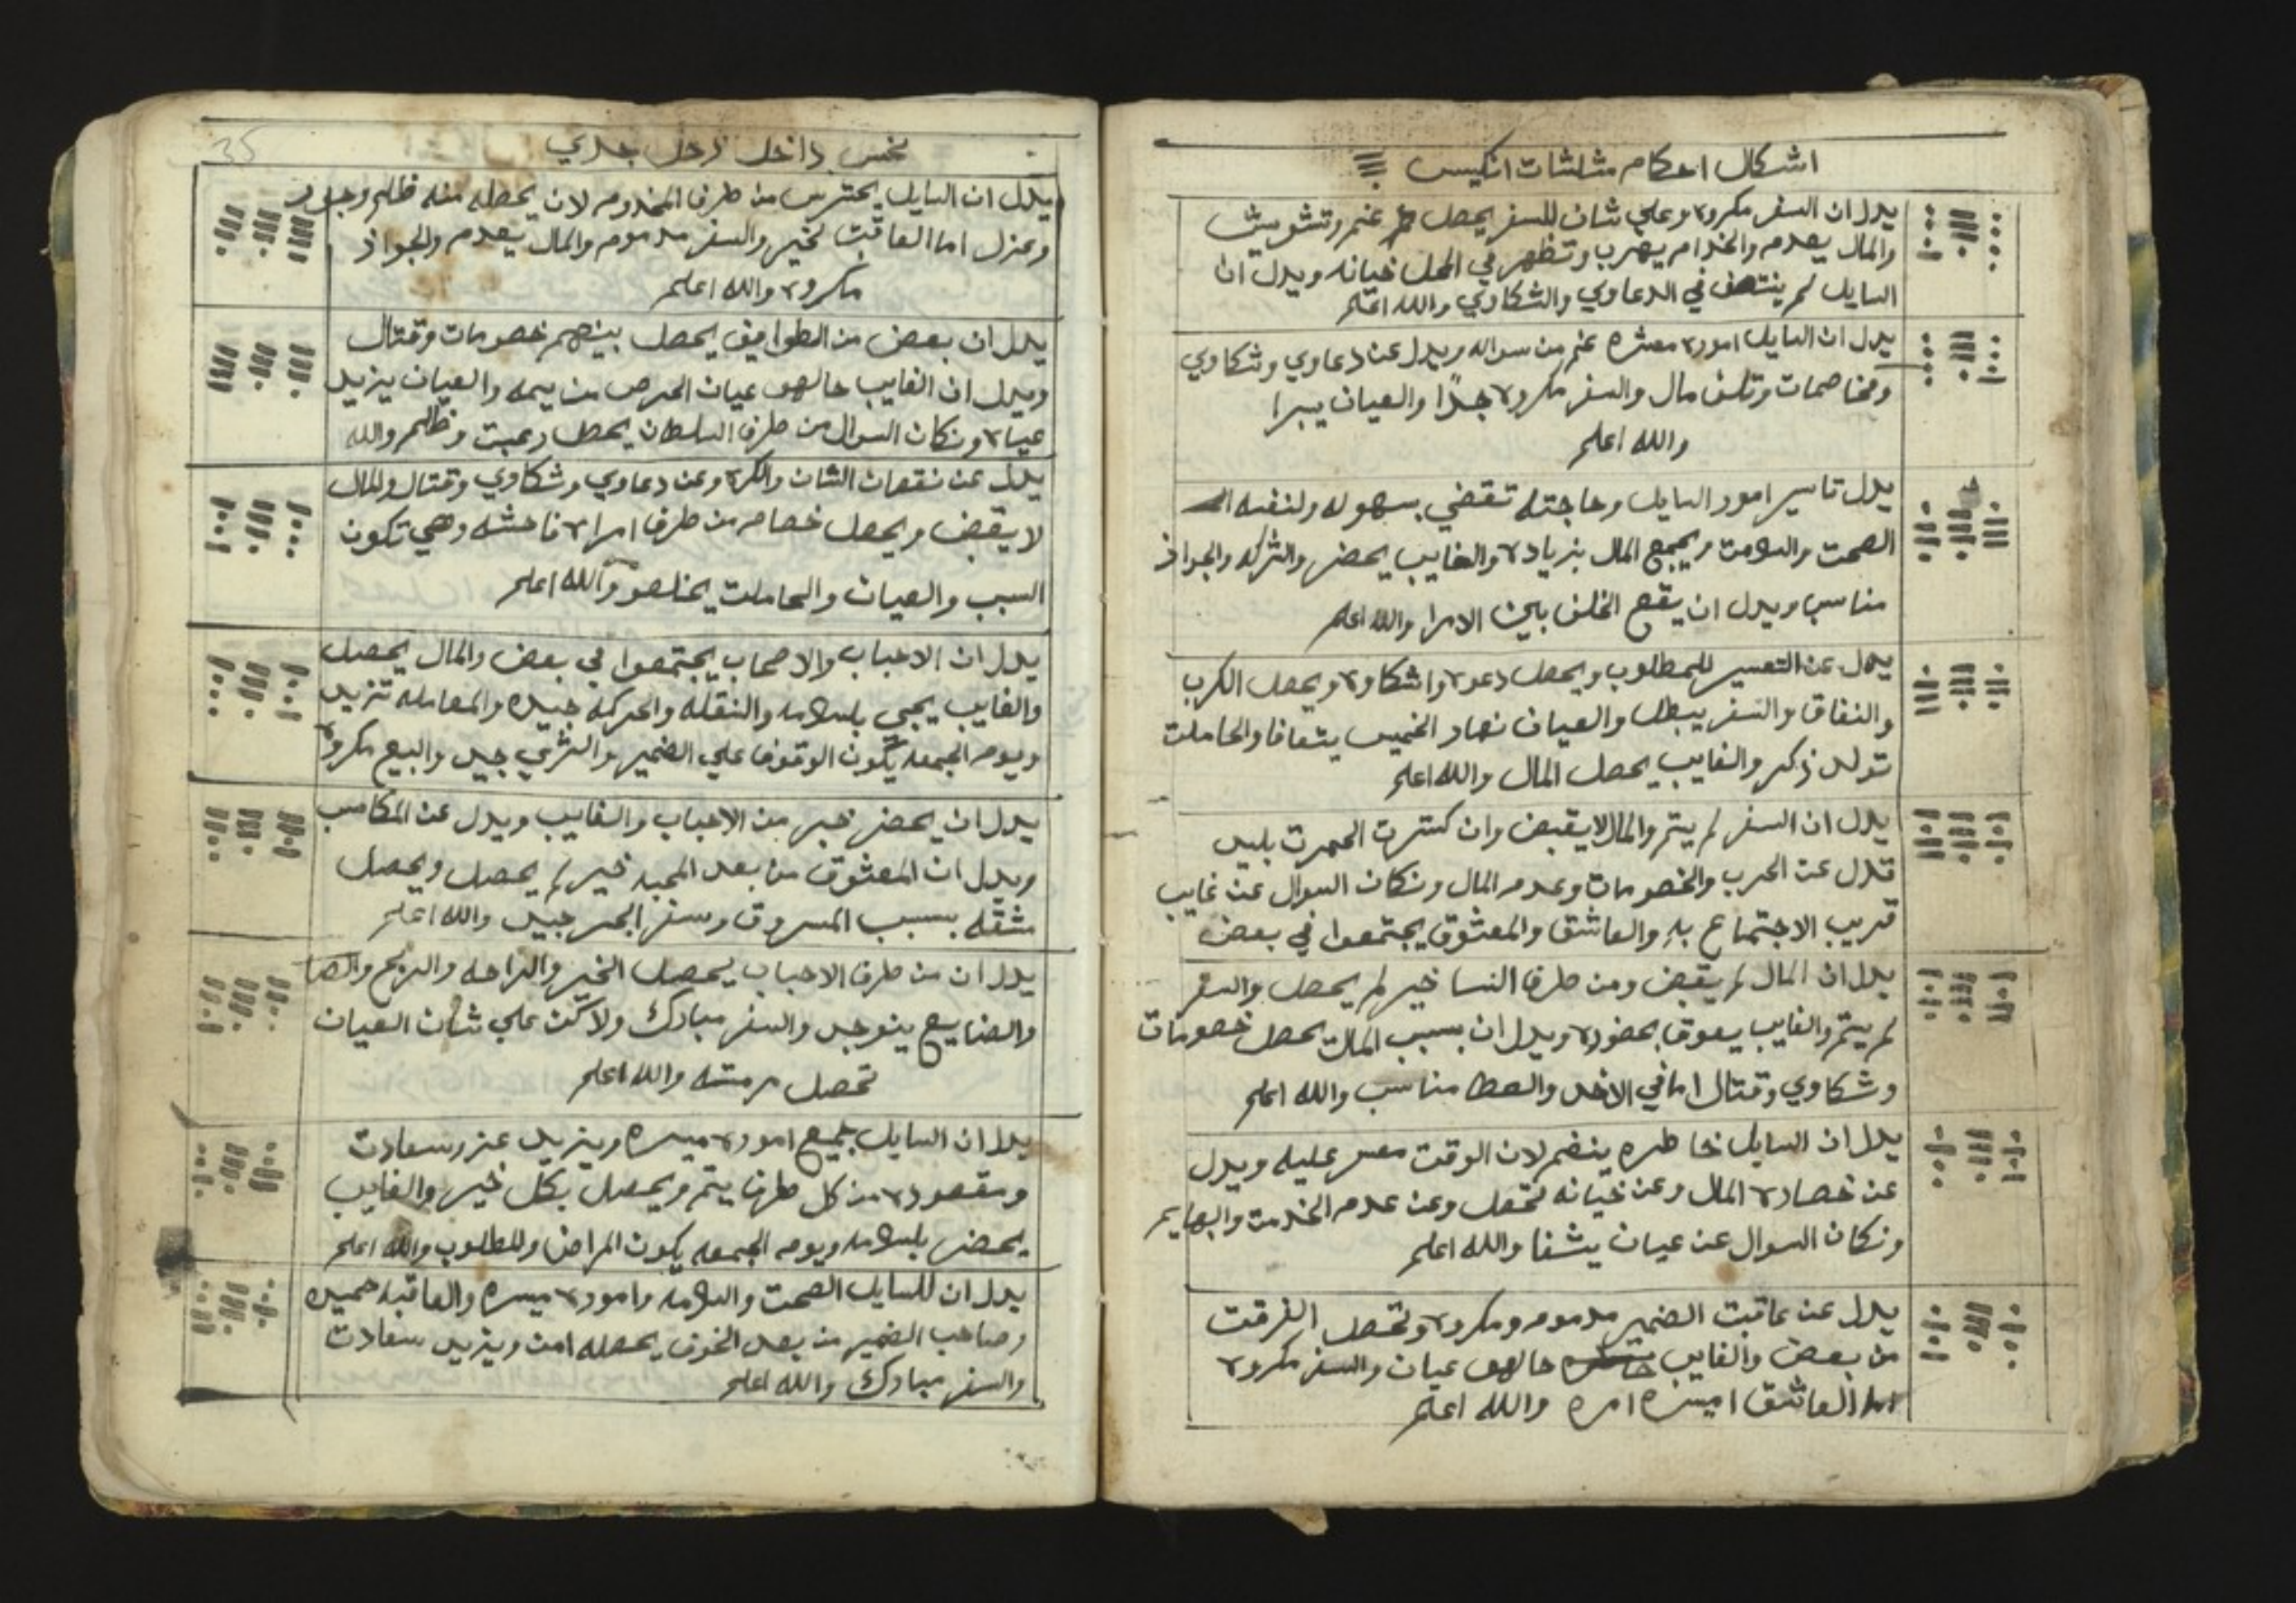 اشكال احكام مثلثات انكيس
يدل ان السفر مكروه وعلي شان للسفر يحصل غم وتشويش
والمال يعدم والخدام يهرب وتظهر في المحل خيانه ويدل ان
السايل لم ينتصف في الدعاوي والشكاوي والله اعلم
يدل ان السايل اموره معسره غم من سواله ويدل عن دعاوي وشكاوي
ومخاصمات وتلف مال والسفر مكروه جدًا والعيان يبرا
والله اعلم
يدل تاسير امور السايل وحاجته تقضي بسهوله ولنفسه
الصحت والسلامت ويجمع المال بزياده والغايب يحضر والشركه والجواز
مناسب ويدل ان يقع الخلف بين الامرا والله اعلم
يدل عن التعسير للمطلوب ويحصل دعوه واشكاوه ويحصل الكرب
والنفاق والسفر يبطل والعيان نهار الخميس يتعافا والحاملت
تولد ذكر والغايب يحصل المال والله اعلم
يدل ان السفر لم يتم والمال لا يقبض وان كسرت الحمرت بلبيض
تدل عن الحرب والخصومات وعدم المال ونكان السوال عن غايب
قريب الاجتماع به والعاشق والمعشوق يجتمعوا في بعض
يدل ان المال لم يقبض ومن طرف النسا خير لم يحصل والسفر
لم يتم والغايب يعوق بحضوره ويدل ان بسبب المال يحصل خصومات
وشكاوي وقتال اما في الاخد والعطا مناسب والله اعلم
يدل ان السايل خاطره ينضم لان الوقت معسر عليه ويدل
عن خصاره المال وعن خيانه تحصل وعن عدم الخدمت والبهايم
ونكان السوال عن عيان يشفا والله اعلم
يدل عن عاقبت الضمير مدموم ومكروه وتحصل الفرقت
من بعض والغايب حالهو عيان والسفر مكروه
اما العاشق اميسره امره والله اعلم
نحس داخل زحل جدي
35
يدل ان السايل يحترس من طرف المخدوم لان يحصله منه ظلم وجور
وعزل اما العاقبت لخير والسفر مدموم والمال يعدم والجواز
مكروه والله اعلم
يدل ان بعض من الطوايف يحصل بينهم خصومات وقتال
ويدل ان الغايب حالهو عيان المرض من يمه والعيان يزيد
عياه ونكان السوال من طرف السلطان يحصل رعبت وظلم والله
يدل عن نقصان الشان والكره وعن دعاوي وشكاوي وقتال والمال
لا يقبض ويحصل خصام من طرف امراه فاحشه وهي تكون
السبب والعيان والحاملت يخلصو والله اعلم
يدل ان الاحباب والاصحاب يجتمعوا في بعض والمال يحصل
والغايب يجي بلسلامه والنقله والحركه جيده والمعامله تزيد
ويوم الجمعه يكون الوقوف علي الضمير والشري جيد والبيع مكروه
يدل ان يحضر خبر من الاحباب والغايب ويدل عن المكاسب
ويدل ان المعشوق من بعد المحبه خير لم يحصل ويحصل
مشقه بسبب المسروق وسفر البحر جيد والله اعلم
يدل ان من طرف الاحباب يحصل الخير والراحه والربح
والضايع ينوجد والسفر مبارك ولاكن علي شان العيان
تحصل والله اعلم
يدل ان السايل جميع اموره ميسره ويزيد عز وسعادت
ومقصوده من كل طرف يتم ويحصل بكل خير والغايب
يحضر بلسلامه ويوم الجمعه يكون المراض وللمطلوب والله اعلم
يدل ان للسايل الصحت والسلامه واموره ميسره والعاقبه حميده
وصاحب الضمير من بعد الخوف يحصله امن ويزيد سعادت
والسفر مبارك والله اعلم